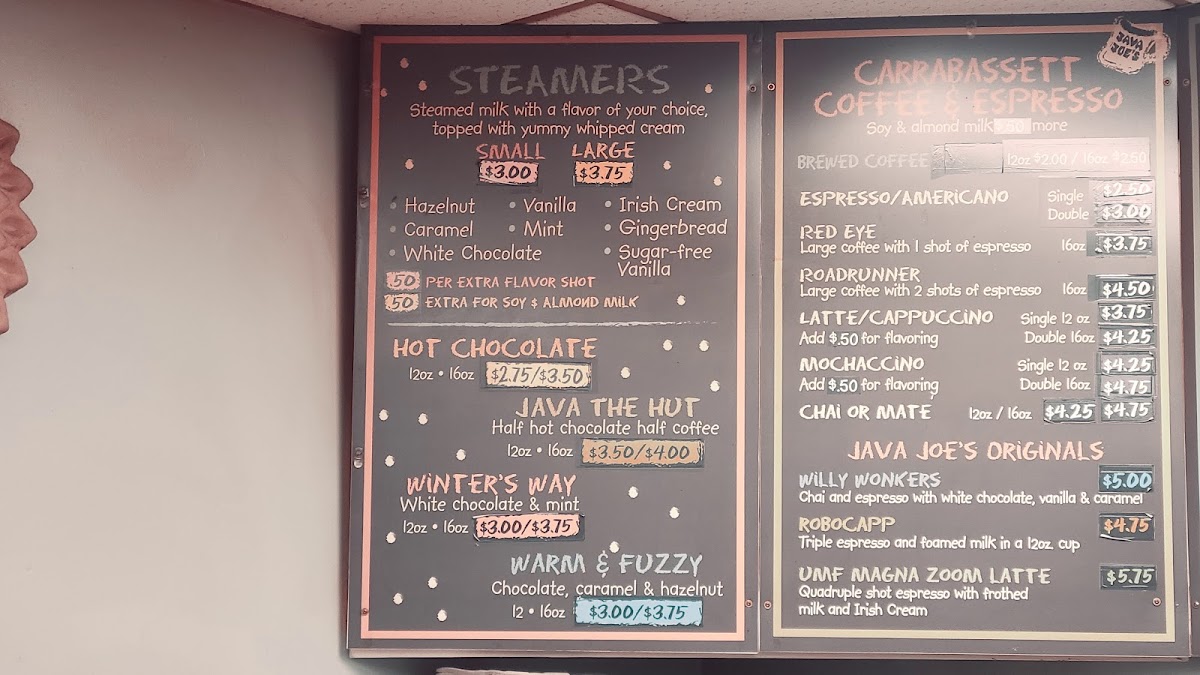 STEAMERS
Steamed milk with a flavor of your choice,
topped with yummy whipped cream
SMALL LARGE
$3.00 $3.75
• Hazelnut • Vanilla • Irish Cream
• Caramel • Mint • Gingerbread
• White Chocolate • Sugar-free
Vanilla
.50 PER EXTRA FLAVOR SHOT
.50 EXTRA FOR SOY & ALMOND MILK
HOT CHOCOLATE
12oz • 16oz $2.75/$3.50
JAVA THE HUT
Half hot chocolate half coffee
12oz • 16oz $3.50/$4.00
WINTER'S WAY
White chocolate & mint
12oz • 16oz $3.00/$3.75
WARM & FUZZY
Chocolate, caramel & hazelnut
12 • 16oz $3.00/$3.75
JAVA
JOE'S
CARRABASSETT
COFFEE & ESPRESSO
Soy & almond milk $.50 more
BREWED COFFEE 12oz $2.00 / 16oz $2.50
ESPRESSO/AMERICANO Single $2.50
Double $3.00
RED EYE
Large coffee with 1 shot of espresso 16oz $3.75
ROADRUNNER
Large coffee with 2 shots of espresso 16oz $4.50
LATTE/CAPPUCCINO Single 12 oz $3.75
Add $.50 for flavoring Double 16oz $4.25
MOCHACCINO Single 12 oz $4.25
Add $.50 for flavoring Double 16oz $4.75
CHAI OR MATE 12oz / 16oz $4.25 $4.75
JAVA JOE'S ORIGINALS
WILLY WONKERS $5.00
Chai and espresso with white chocolate, vanilla & caramel
ROBOCAPP $4.75
Triple espresso and foamed milk in a 12oz. cup
UMF MAGNA ZOOM LATTE $5.75
Quadruple shot espresso with frothed
milk and Irish Cream